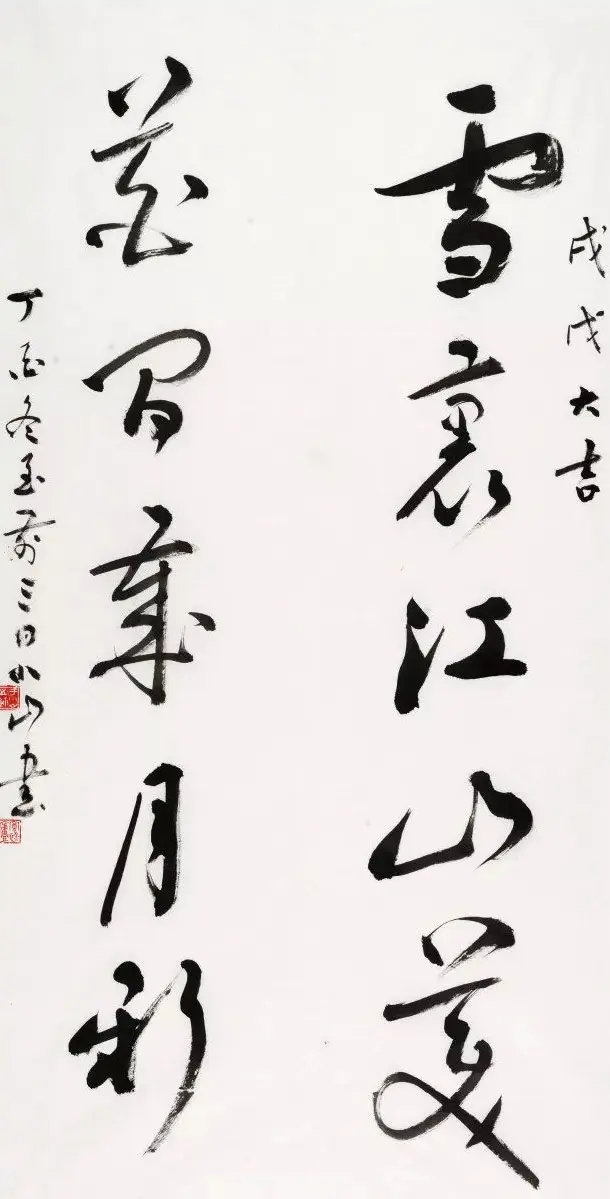 戊戌大吉
雪裏江山美
花間歲月新
丁酉冬至前三日小山書